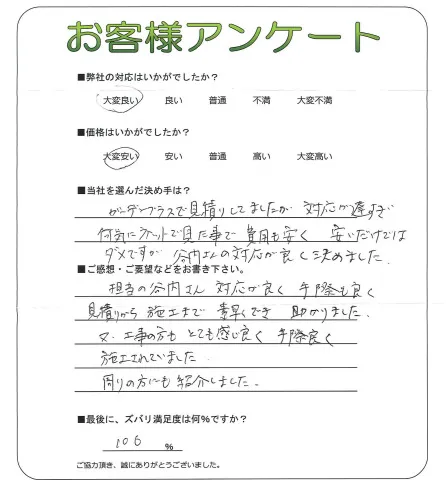 お客様アンケート
■弊社の対応はいかがでしたか？
大変良い 良い 普通 不満 大変不満
■価格はいかがでしたか？
大変安い 安い 普通 高い 大変高い
■当社を選んだ決め手は？
ガーデンプラスで見積りしてましたが 対応が遅すぎ
何気にネットで見た事で 費用も安く 安いだけでは
ダメですが 谷内さんの対応が良く決めました.
■ご感想・ご要望などをお書き下さい。
担当の谷内さん 対応が良く 手際も良く
見積りから 施工まで 素早くでき 助かりました.
又. 工事の方も とても感じ良く 手際良く
施工されていました.
周りの方にも紹介しました.
■最後に、ズバリ満足度は何%ですか？
100 %
ご協力頂き、誠にありがとうございました。